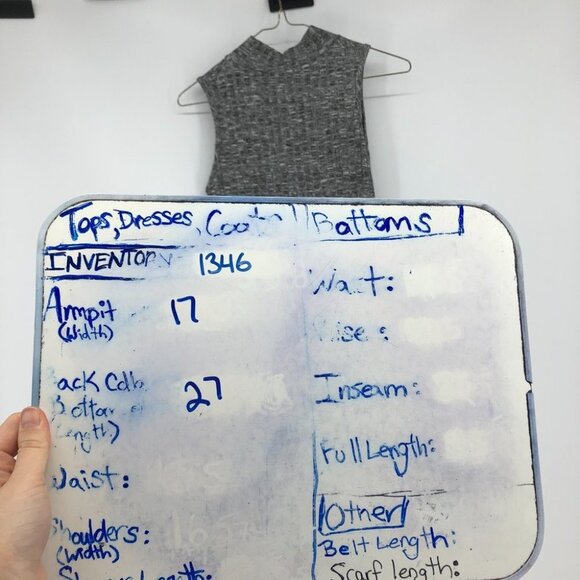 Tops, Dresses, Coats
INVENTORY 1346
Armpit 17
(Width)
Back Collar 27
Bottom of
(Length)
Waist:
Shoulders:
(Width)
Sleeve Length:
Bottoms
Waist:
Rise:
Inseam:
Full Length:
Other
Belt Length:
Scarf Length: